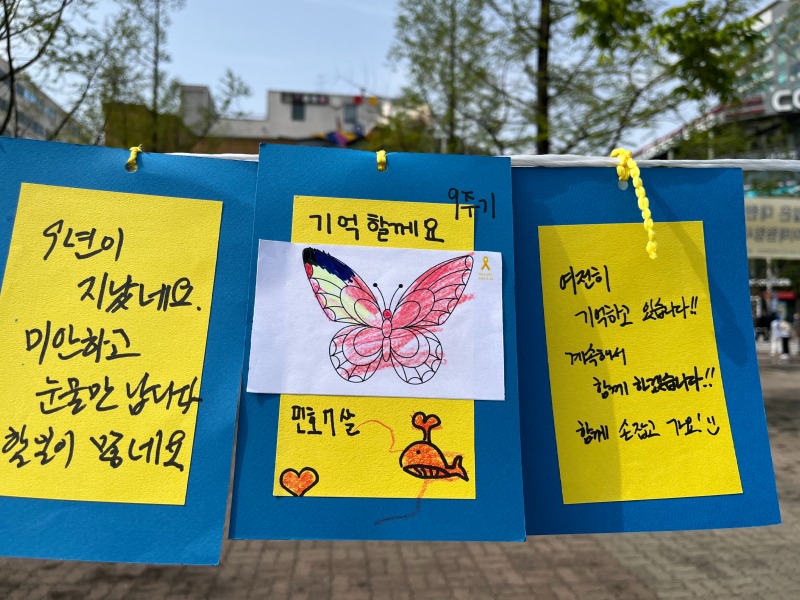 9년이
지났네요.
미안하고
눈물만 납니다
할말이 없네요
9주기
기억할께요
민호 7살
여전히
기억하고 있습니다!!
계속해서
함께 하겠습니다!!
함께 손잡고 가요!
CO